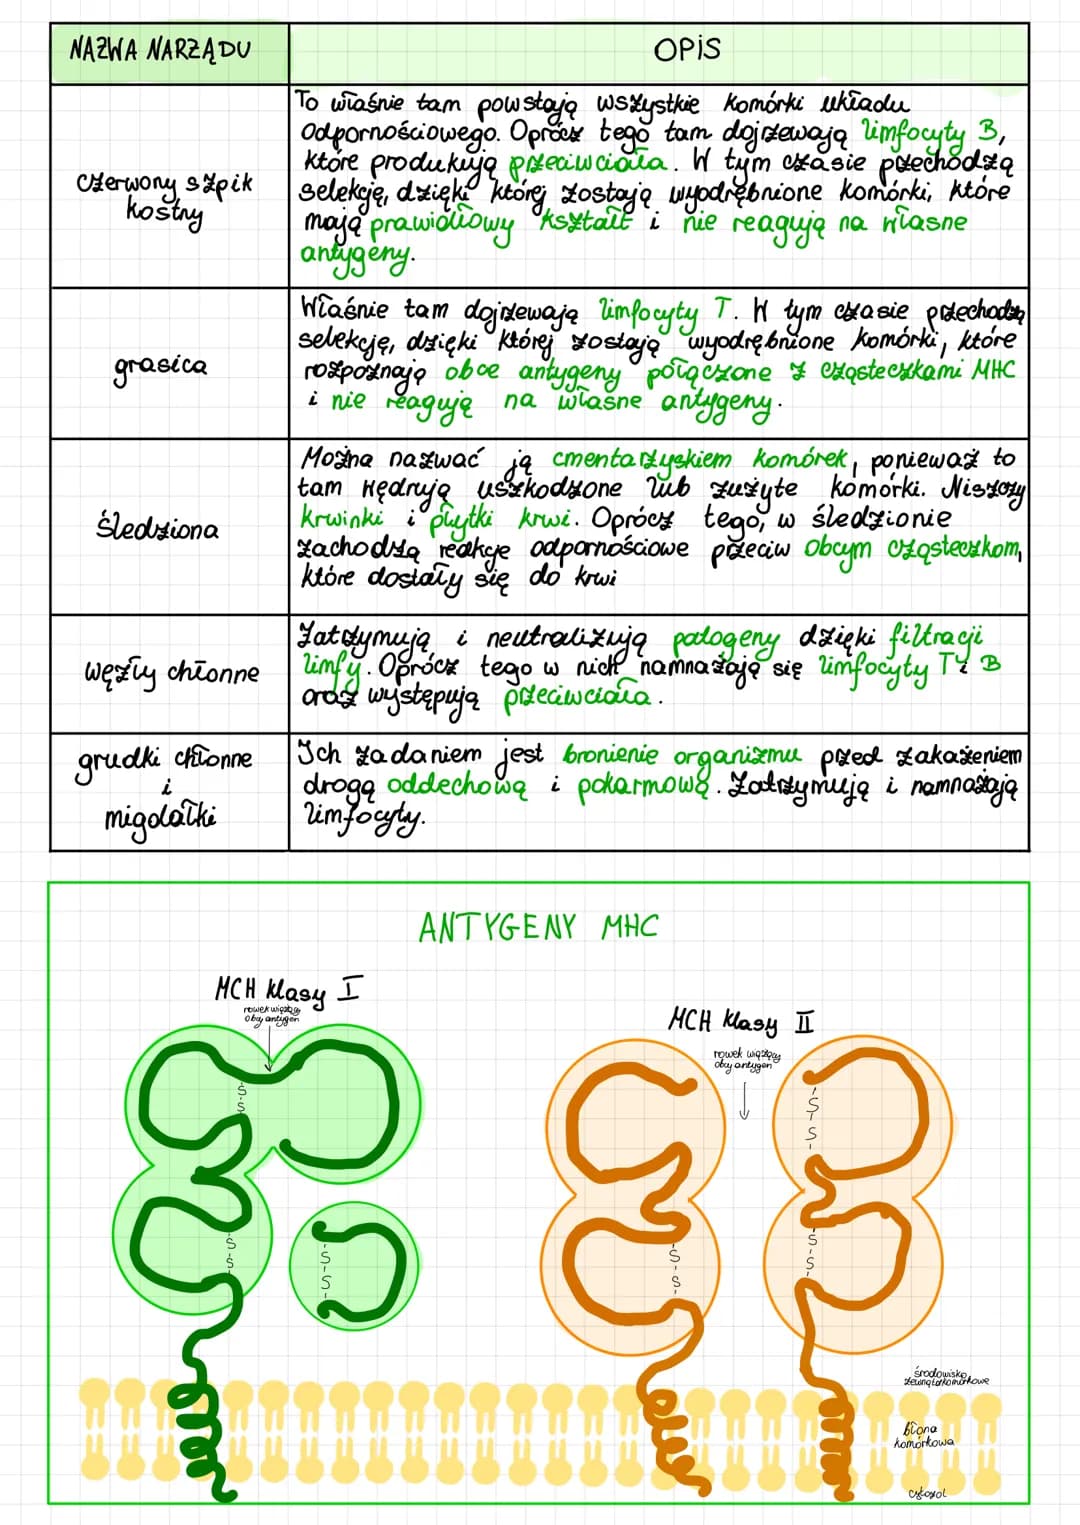 NAZWA NARZĄDU
OPIS
czerwony szpik
kostny
To właśnie tam powstają wszystkie komórki układu
odpornościowego. Oprócz tego tam dojrzewają limfocyty B,
które produkują przeciwciała. W tym czasie przechodzą
selekcję, dzięki której zostają wyodrębnione komórki, które
mają prawidłowy kształt i nie reagują na własne
antygeny.
grasica
Właśnie tam dojrzewają limfocyty T. W tym czasie przechodzą
selekcję, dzięki której zostają wyodrębnione komórki, które
rozpoznają obce antygeny połączone z cząsteczkami MHC
i nie reagują na własne antygeny.
śledziona
Można nazwać ją cmentarzyskiem komórek, ponieważ to
tam wędrują uszkodzone lub zużyte komórki. Niszczy
krwinki i płytki krwi. Oprócz tego, w śledzionie
zachodzą reakcje odpornościowe przeciw obcym cząsteczkom,
które dostały się do krwi
węzły chłonne
Zatrzymują i neutralizują patogeny dzięki filtracji
limfy. Oprócz tego w nich namnażają się limfocyty T i B
oraz występują przeciwciała.
grudki chłonne
i
migdałki
Ich zadaniem jest bronienie organizmu przed zakażeniem
drogą oddechową i pokarmową. Zatrzymują i namnażają
limfocyty.
ANTYGENY MHC
MCH klasy I
rowek wiążący
obcy antygen
MCH klasy II
rowek wiążący
obcy antygen
S
S
S
S
S
S
S
S
S
S
S
S
środowisko
zewnątrzkomórkowe
błona
komórkowa
cytozol